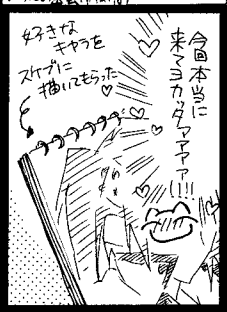 今回本当に
来てヨカッダァァァァ!!!
好きな
キャラを
スケブに
描いてもらった